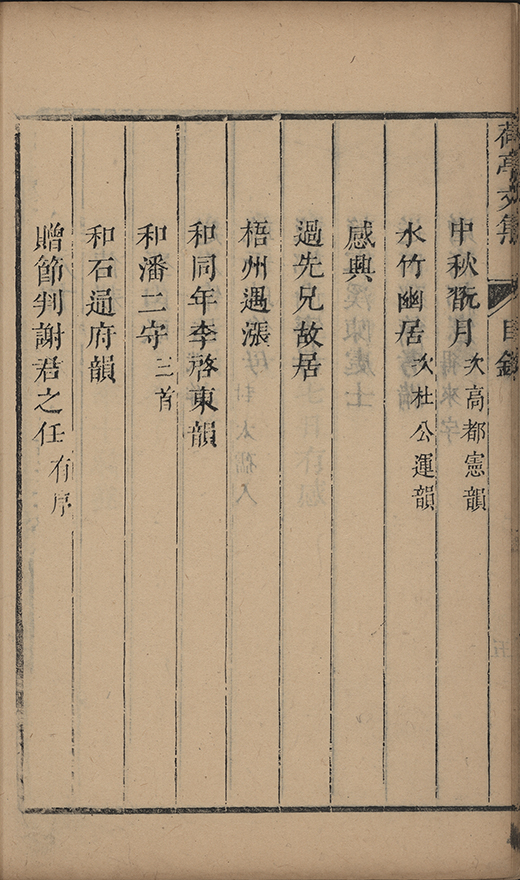 荷亭文集 目錄
中秋翫月 次高都憲韻
水竹幽居 次杜公運韻
感興
過先兄故居
梧州遇漲
和同年李啓東韻
和潘二守 三首
和石通府韻
贈節判謝君之任 有序